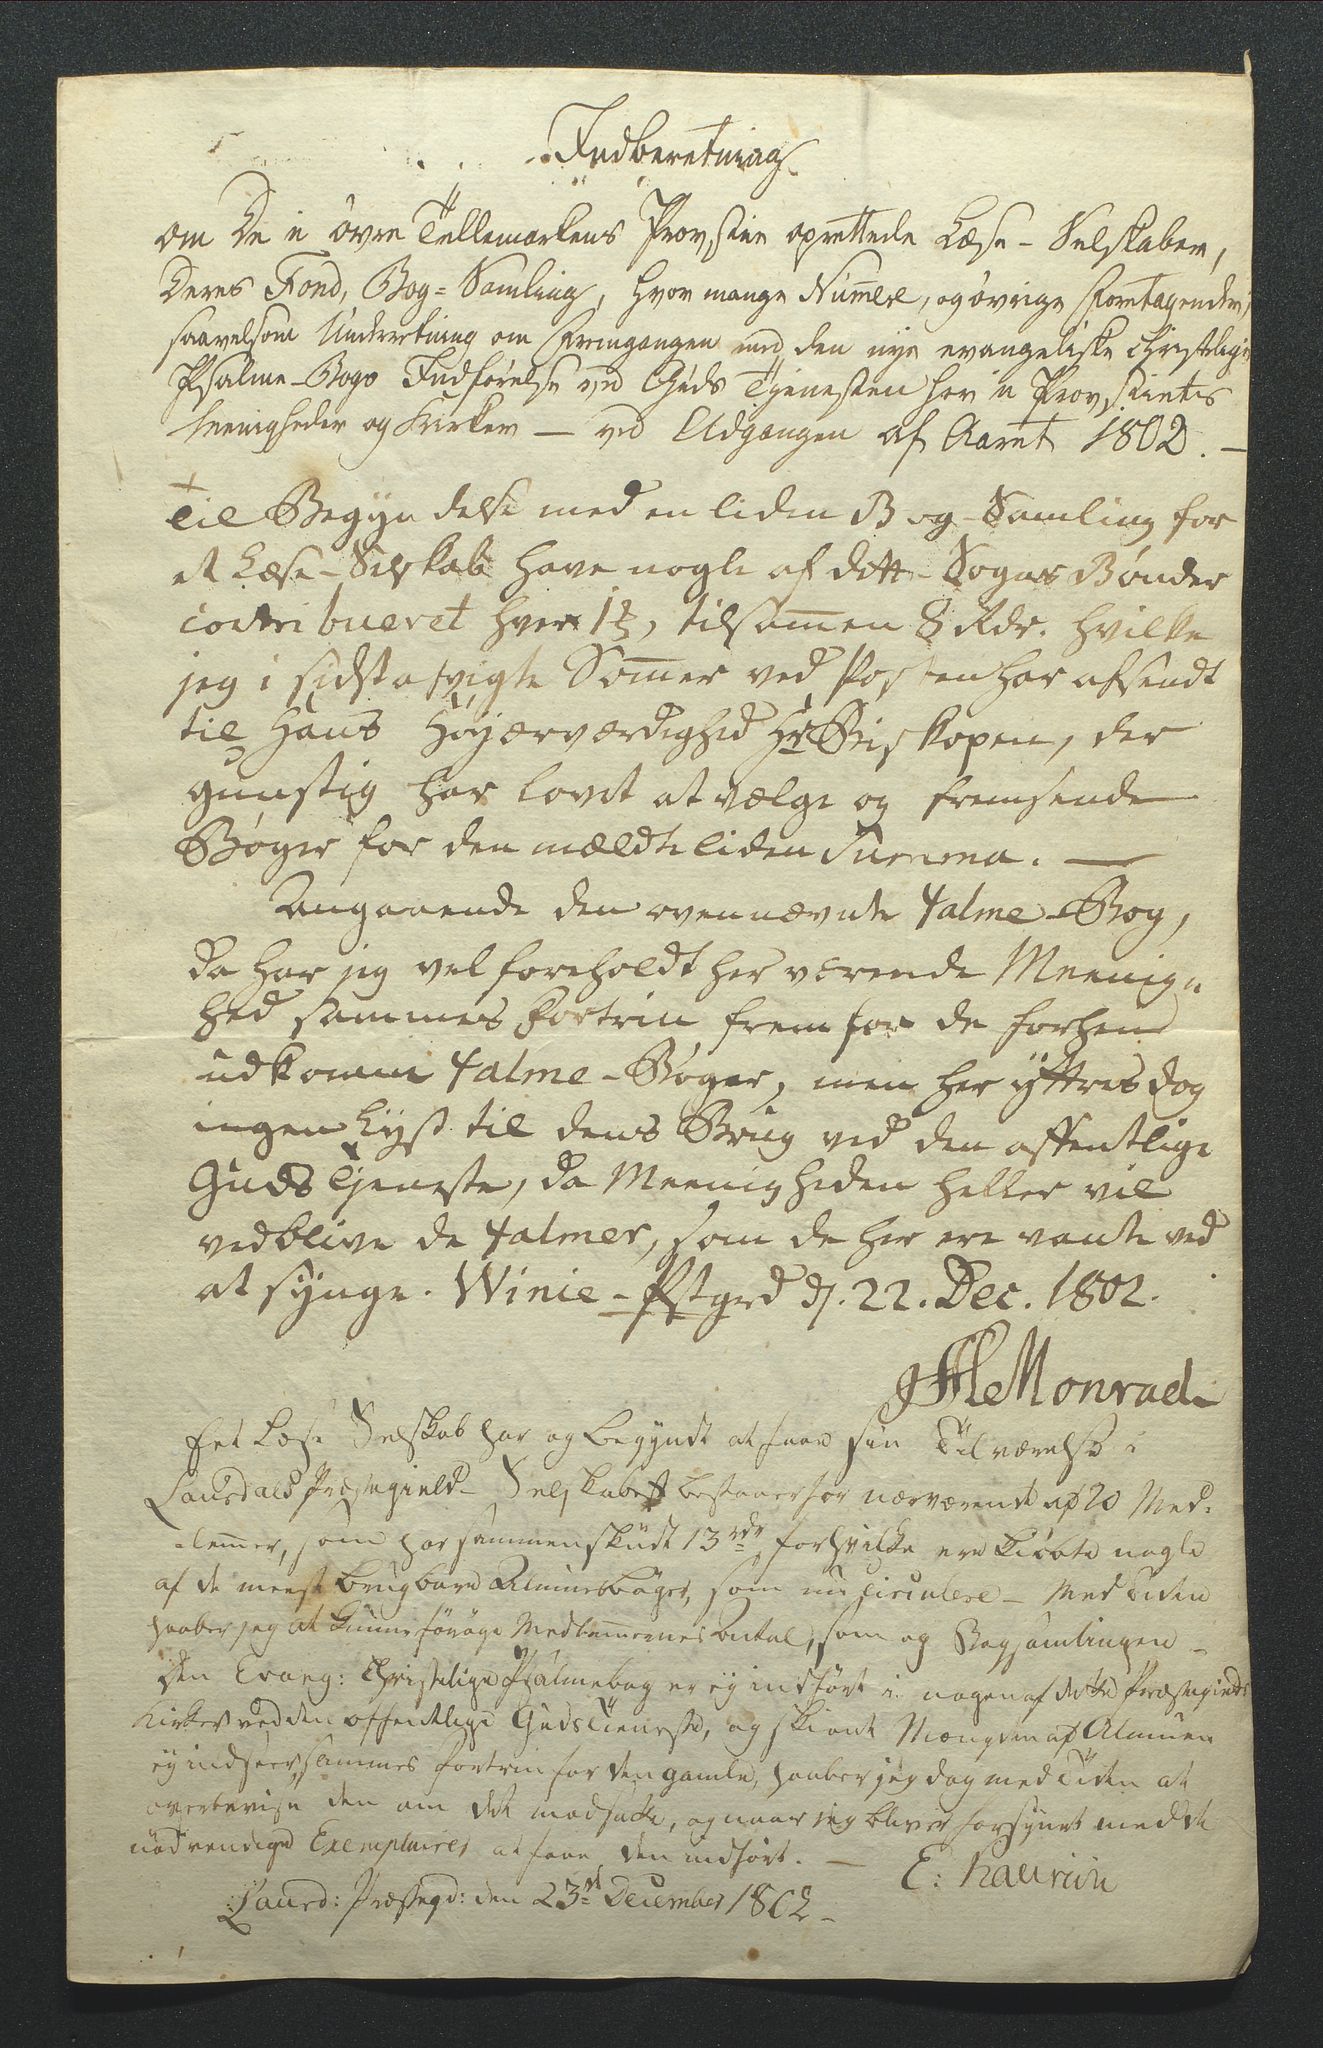 Indberetning
om De i øvre Tellemarkens Provstie oprettede Læse-Selskaber,
Deres Fond, Bog-Samling, hvor mange Numere, og øvrige Foretagender,
saavelsom Underretning om Fremgangen med den nye evangeliske christelige
Psalme-Bogs Indførelse ved Guds Tjenesten her i Provstiets
Menigheder og Kirker — ved Udgangen af Aaret 1802. —
Til Begyndelse med en liden Bog-Samling for
et Læse-Selskab have nogle af dette Sogns Bønder
contribueret hver 1 , tilsam̅en 8 Rdr. hvilke
jeg i sidstafvigte Som̅er ved Posten har afsendt
til Hans Højærværdighed Hr Biskopen, der
gunstig har lovet at vælge og fremsende
Bøger for den mældte liden Summa. —
Angaaende den ovennævnte ψalme-Bog,
da har jeg vel foreholdt herværende Meenig-
hed sammes Fortrin frem for de forhen
udkomne ψalme-Bøger, men her yttres dog
ingen Lyst til dens Brug ved den offentlige
Guds Tjeneste, da Meenigheden heller vil
vedblive de ψalmer, som de her ere vante ved
at synge. Winie-Pstgrd d. 22. Dec. 1802.
Monrad
Eet Læse Selskab har og begyndt at faae sin Tilværelse i
Laurdals Præstegield - Selskabet bestaaer for nærværende af 20 Med-
lemmer, som har sammenskudt 13 rdr, forhvilke ere kiøbte nogle
af de meest brugbare Almuesbøger, som nu circulere - Med Tiden
haaber jeg at kunne forøge Medlemmernes Antal, som og Bogsamlingen -
Den Evang: Christelige Psalmebog er ej indført i nogen af dette Præstegields
Kirker ved den offentlige Guds Tieneste, og skiønt Mængden af Almuen
ej indseer sammes Fortrin for den gamle, haaber jeg dog med Tiden at
overbevise den om det modsatte, og naar jeg bliver forsynet med de
nødvendige Exemplairer at faae den indført. —
E: Kaurin
Laurd: Præstegd: den 23de December 1802 -